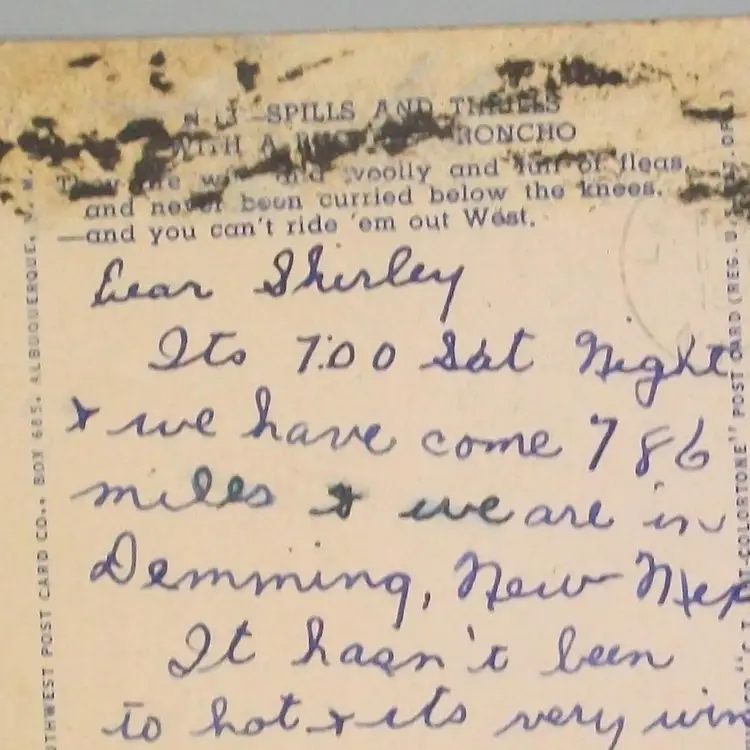 —SPILLS AND THRILLS
WITH A RONCHO
and woolly and full of fleas,
and never been curried below the knees.
—and you can't ride 'em out West.
Dear Shirley
Its 7:00 Sat Night
& we have come 786
miles & we are in
Demming, New Mex
It hasn't been
to hot & its very win
THWEST POST CARD CO., BOX 685, ALBUQUERQUE, N. M.
COLORTONE" POST CARD (REG. U. S. PAT. OFF.)